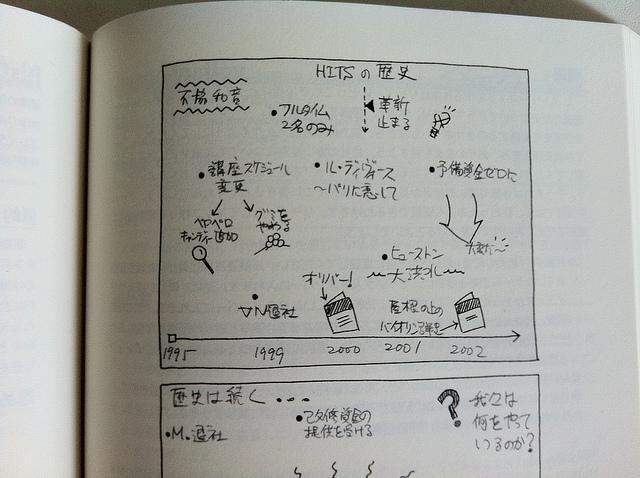 HITSの歴史
不協和音
・フルタイム
2名のみ
革新
止まる
・講座スケジュール
変更
・ル・ディヴォース
〜パリに恋して
・予備資金ゼロに
ペロペロ
キャンディー追加
グミを
やめる
大変だ〜
・ヒューストン
大洪水
オリバー!
・
N退社
屋根の上の
バイオリン弾き
1995
1999
2000
2001
2002
歴史は続く・・・
・M.退社
・改修資金の
提供を受ける
?
我々は
何をやって
いるのか?